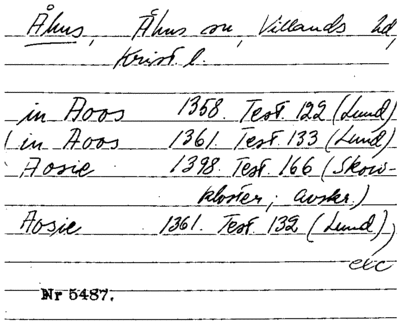 Åhus, Åhus sn, Villands hd,
Krist. l.
in Aoos 1358. Test. 122 (Lund)
(in Aoos 1361. Test. 133 (Lund)
Aosie 1398. Test. 166 (Skow-
kloster; avskr.)
Aosie 1361. Test. 132 (Lund),
etc
Nr 5487.